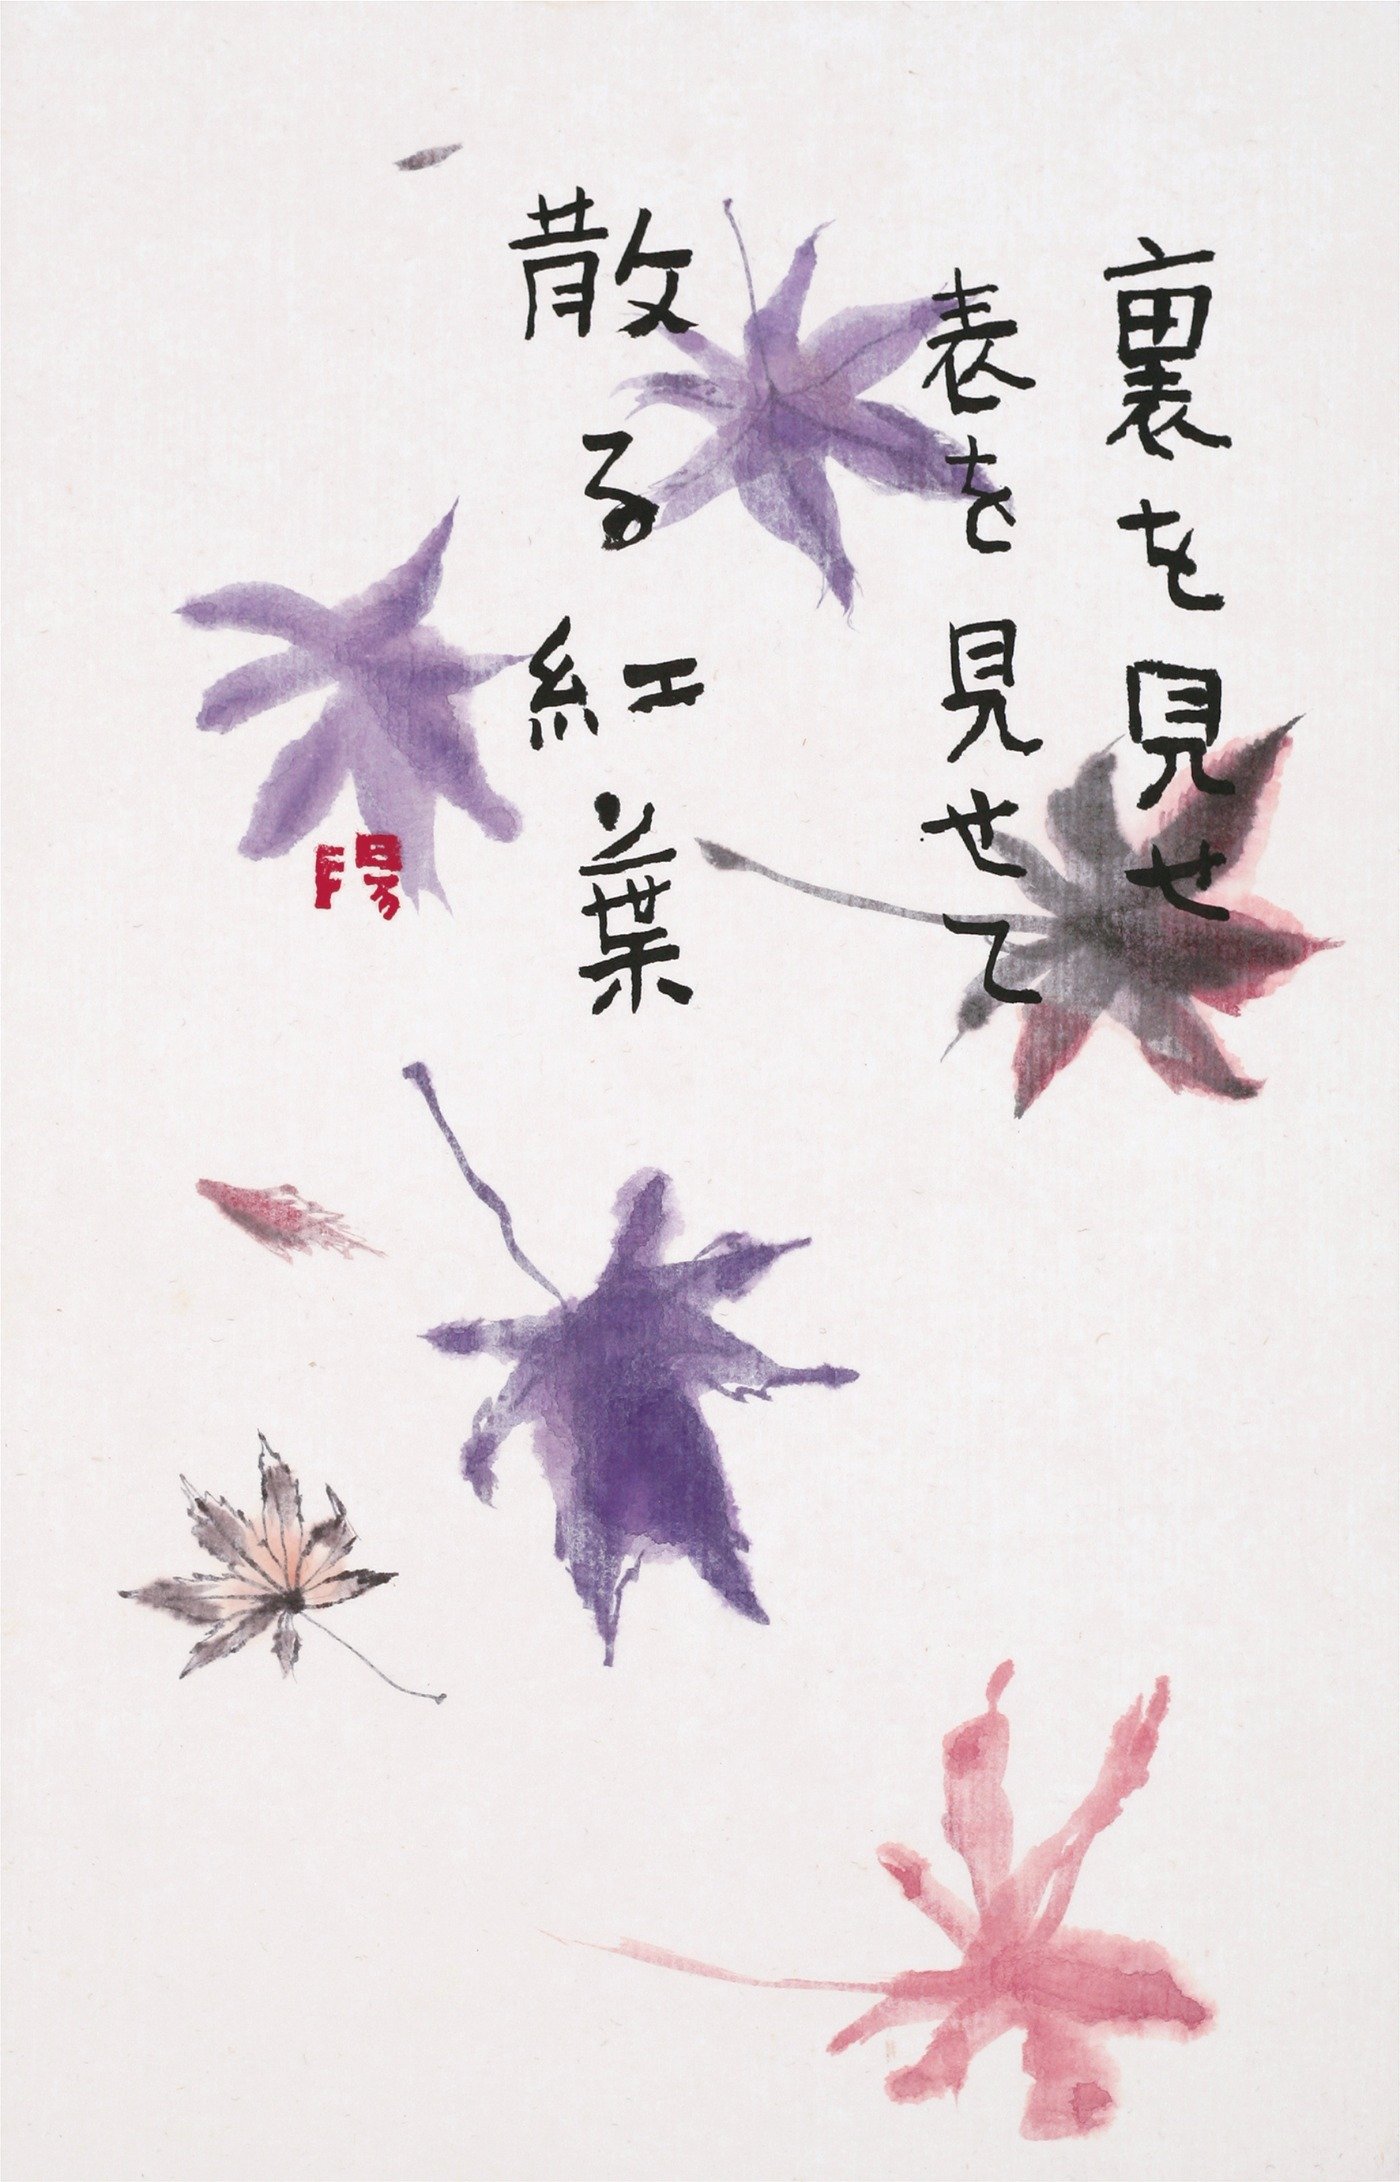 裏を見せ
表を見せて
散る紅葉
陽